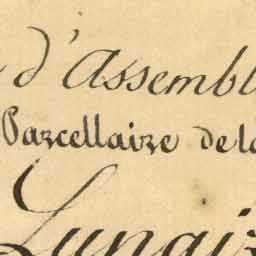 d'Assembl
Parcellaire de la
Lunai